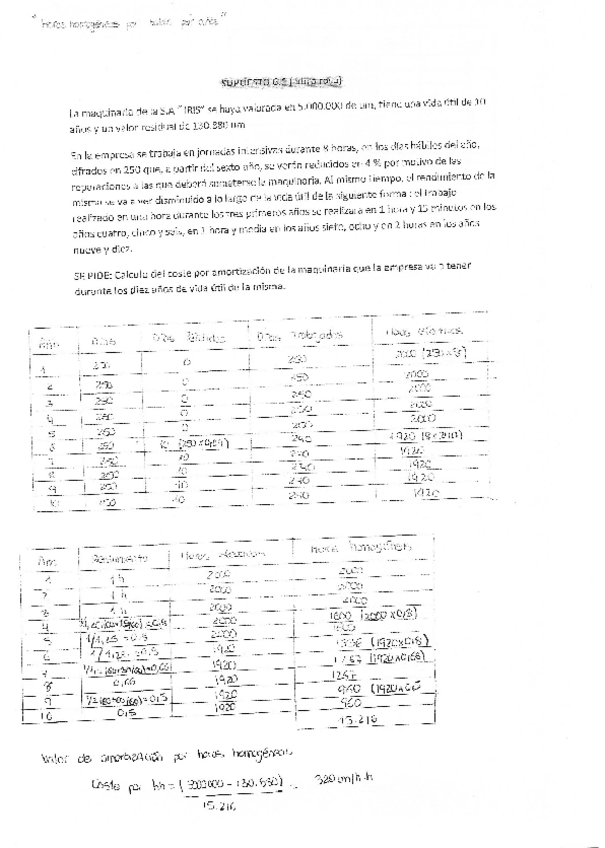 "Horas homogéneas por horas por años"
SUPUESTO 6.5
La maquinaria de la S.A " IRIS" se haya valorada en 5.000.000 de um, tiene una vida útil de 10
años y un valor residual de 130.880 um
En la empresa se trabaja en jornadas intensivas durante 8 horas, en los días hábiles del año,
cifrados en 250 que, a partir del sexto año, se verán reducidos en 4 % por motivo de las
reparaciones a las que deberá someterse la maquinaria. Al mismo tiempo, el rendimiento de la
misma se va a ver disminuido a lo largo de la vida útil de la siguiente forma : el trabajo
realizado en una hora durante los tres primeros años se realizara en 1 hora y 15 minutos en los
años cuatro, cinco y seis, en 1 hora y media en los años siete, ocho y en 2 horas en los años
nueve y diez.
SE PIDE: Calculo del coste por amortización de la maquinaria que la empresa va a tener
durante los diez años de vida útil de la misma.
Año Días Días Perdidos Días Trabajados Horas efectivas
1 250 0 250 2000 (250x8)
2 250 0 250 2000
3 250 0 250 2000
4 250 0 250 2000
5 250 0 250 2000
6 250 10 (250x0,04) 240 1920 (8x240)
7 250 10 240 1920
8 250 10 240 1920
9 250 10 240 1920
10 250 10 240 1920
Año Rendimiento Horas efectivas Horas homogéneas
1 1 h 2000 2000
2 1 h 2000 2000
3 1 h 2000 2000
4 2000 1600 (2000x0,8)
5 1/1,25 = 0,8 2000 1600
6 1/1,25 = 0,8 1920 1536 (1920x0,8)
7 1920 1267 (1920x0,66)
8 0,66 1920 1267
9 1920 960 (1920x0,5)
10 0,5 1920 960
15.216
Valor de amortización por horas homogéneas
Coste por hh = (5000000 - 130.880) = 320 um/h.h
15.216